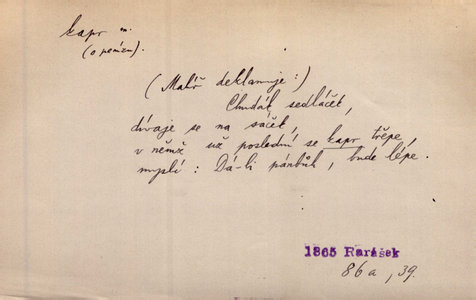 kapr m.
(o penízu).
(Malíř deklamuje:)
Chudák sedláček,
dívaje se na sáček,
v němž už poslední se kapr třepe,
myslí: Dá-li pánbůh, bude lépe.
1865 Rarášek
86a, 39.